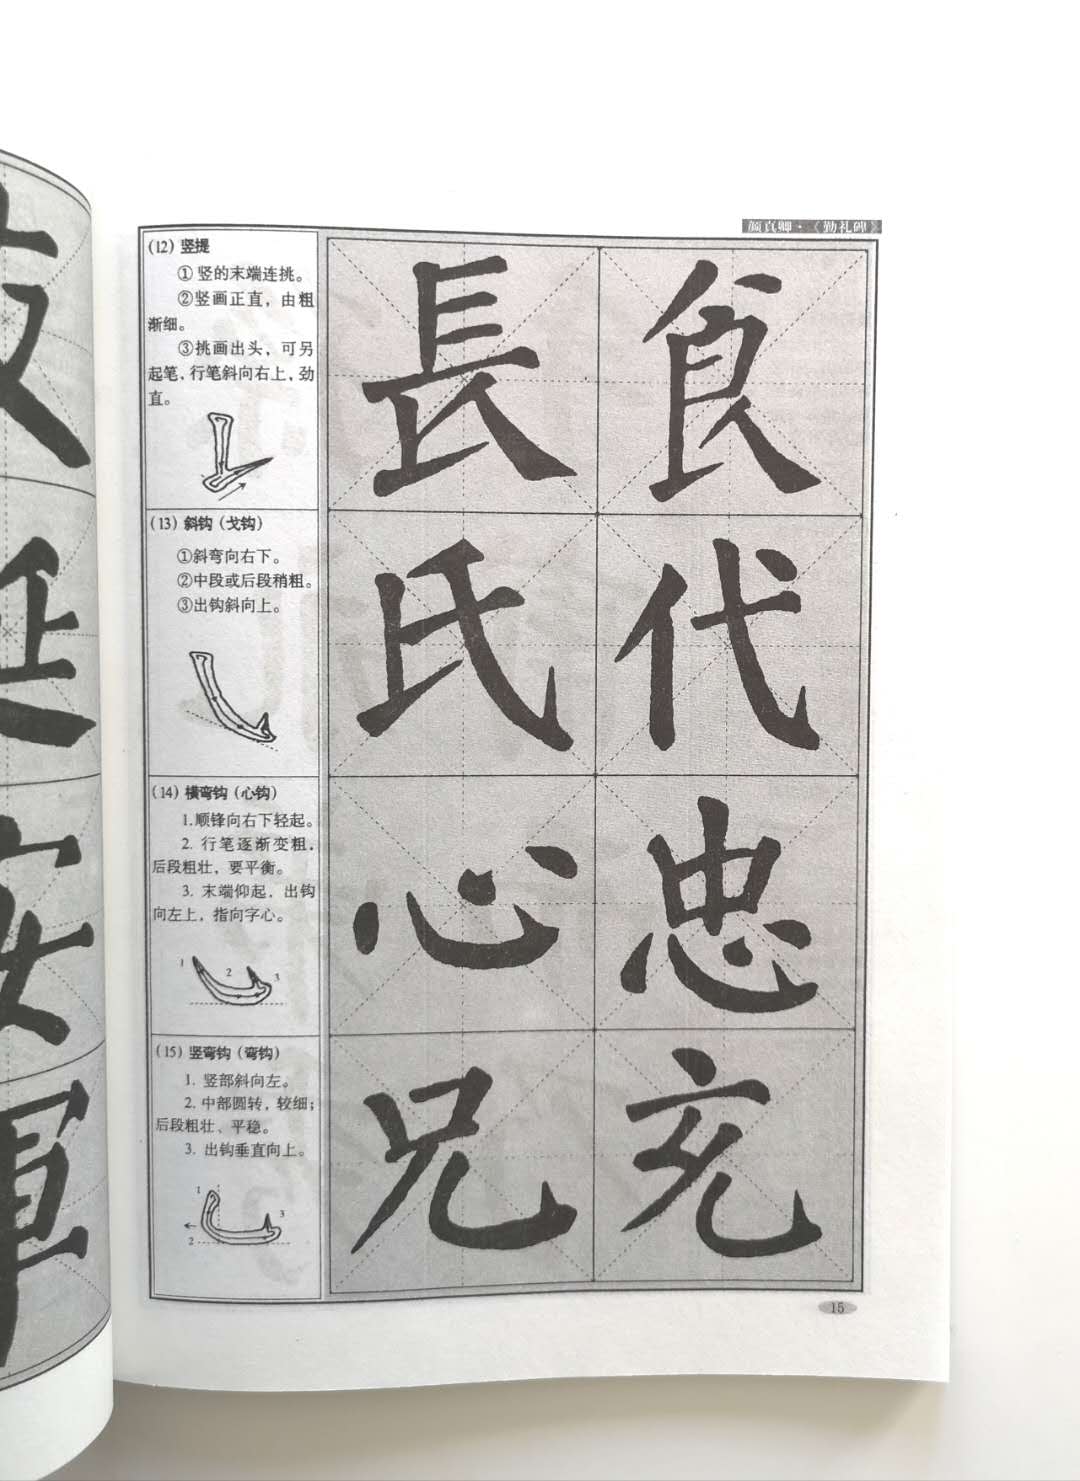 颜真卿·《勤礼碑》
(12) 竖提
① 竖的末端连挑。
②竖画正直，由粗
渐细。
③挑画出头，可另
起笔，行笔斜向右上，劲
直。
長 食
(13) 斜钩（戈钩）
①斜弯向右下。
②中段或后段稍粗。
③出钩斜向上。
氏 代
(14) 横弯钩（心钩）
1.顺锋向右下轻起。
2. 行笔逐渐变粗，
后段粗壮，要平衡。
3. 末端仰起，出钩
向左上，指向字心。
1 2 3
心 忠
(15) 竖弯钩（弯钩）
1. 竖部斜向左。
2. 中部圆转，较细；
后段粗壮、平稳。
3. 出钩垂直向上。
1
3
2
兄 充
15